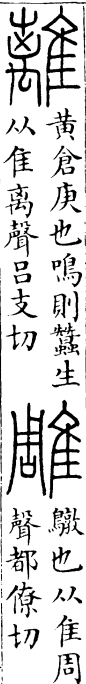 離
黃倉庚也鳴則蠶生
从隹离聲呂支切
雕
鷻也从隹周
聲都僚切